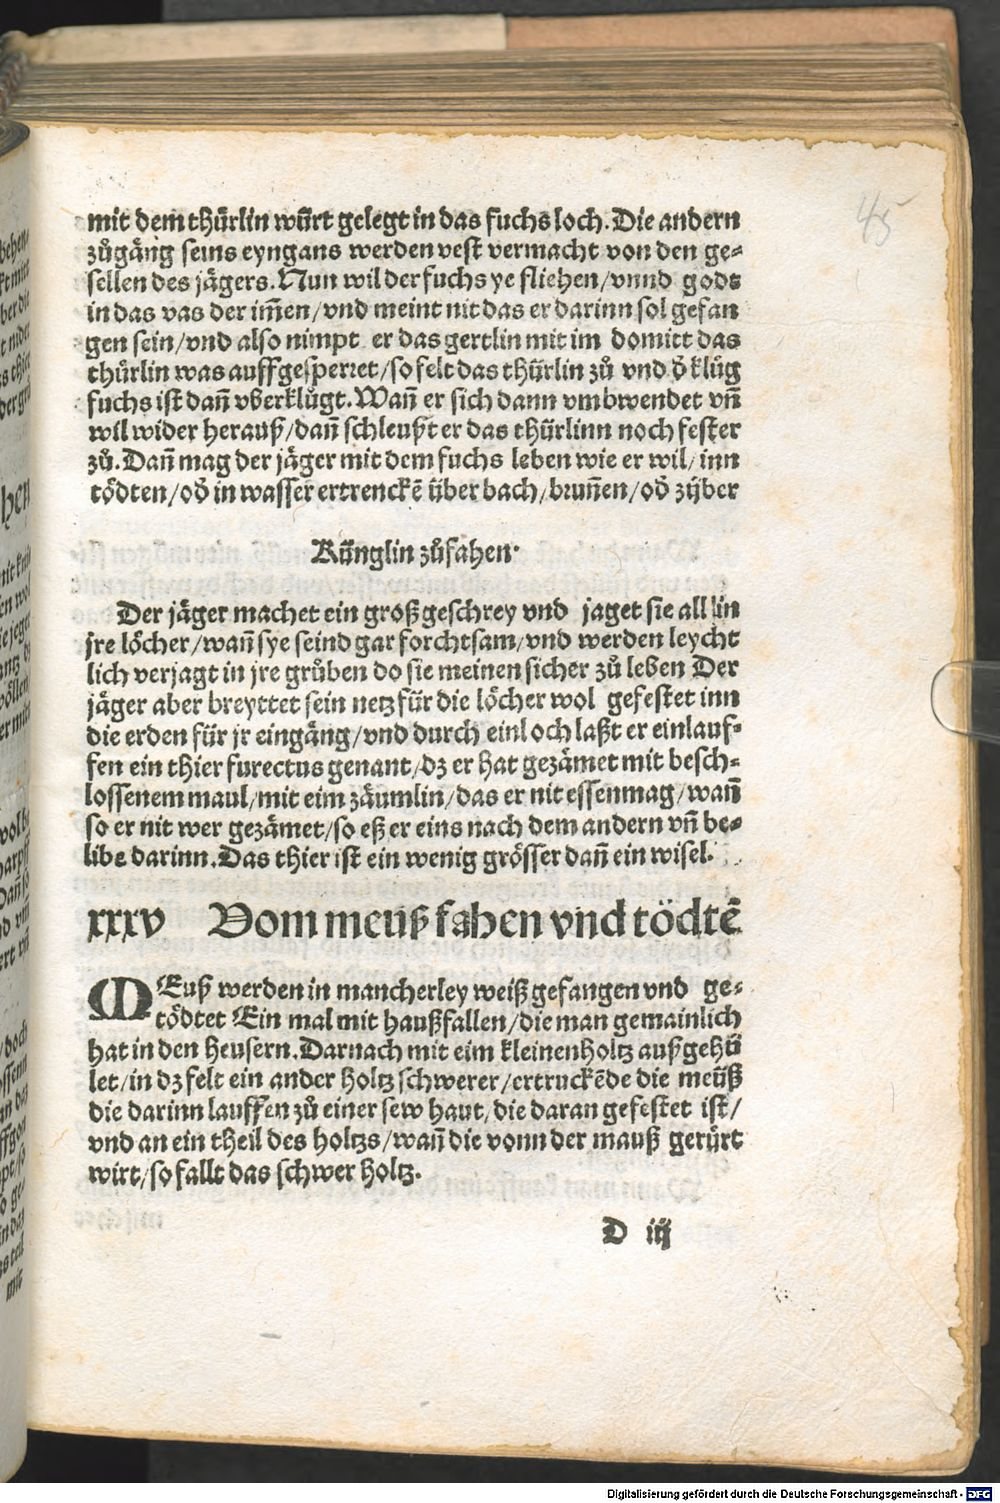 45
mit dem thürlin würt gelegt in das fuchs loch. Die andern
zůgäng seins eyngans werden vest vermacht von den ge⸗
sellen des jägers. Nun wil der fuchs ye fliehen/vnnd gods
in das vas der iñen/vnd meint nit das er darinn sol gefan
gen sein/vnd also nimpt er das gertlin mit im domitt das
thürlin was auffgesperret/so felt das thürlin zů vnd ð klůg
fuchs ist dañ vberklůgt. Wañ er sich dann vmbwendet vñ
wil wider herauß/dañ schleußt er das thürlinn noch fester
zů. Dañ mag der jäger mit dem fuchs leben wie er wil/inn
tödten/oð in wasser ertrenckē über bach/bruñen/oð zijber
Künglin zůfahen·
Der jäger machet ein groß geschrey vnd jaget sie all lin
jre löcher/wañ sye seind gar forchtsam/vnd werden leycht
lich verjagt in jre grůben do sie meinen sicher zů leben Der
jäger aber breyttet sein netz für die löcher wol gefestet inn
die erden für jr eingäng/vnd durch ein loch laßt er einlauf⸗
fen ein thier furectus genant/dz er hat gezämet mit besch⸗
lossenem maul/mit eim zäumlin/das er nit essen mag/wañ
so er nit wer gezämet/so eß er eins nach dem andern vñ be⸗
libe darinn. Das thier ist ein wenig grösser dañ ein wisel.
xxxv Vom meüß fahen vnd tödtē
MEuß werden in mancherley weiß gefangen vnd ge⸗
tödtet Ein mal mit haußfallen/die man gemainlich
hat in den heusern. Darnach mit eim kleinen holtz außgehü
let/in dz felt ein ander holtz schwerer/ertruckēde die meüß
die darinn lauffen zů einer sew haut/die daran gefestet ist/
vnd an ein theil des holtzs/wañ die vonn der mauß gerürt
wirt/so fallt das schwer holtz.
D iij
Digitalisierung gefördert durch die Deutsche Forschungsgemeinschaft - DFG